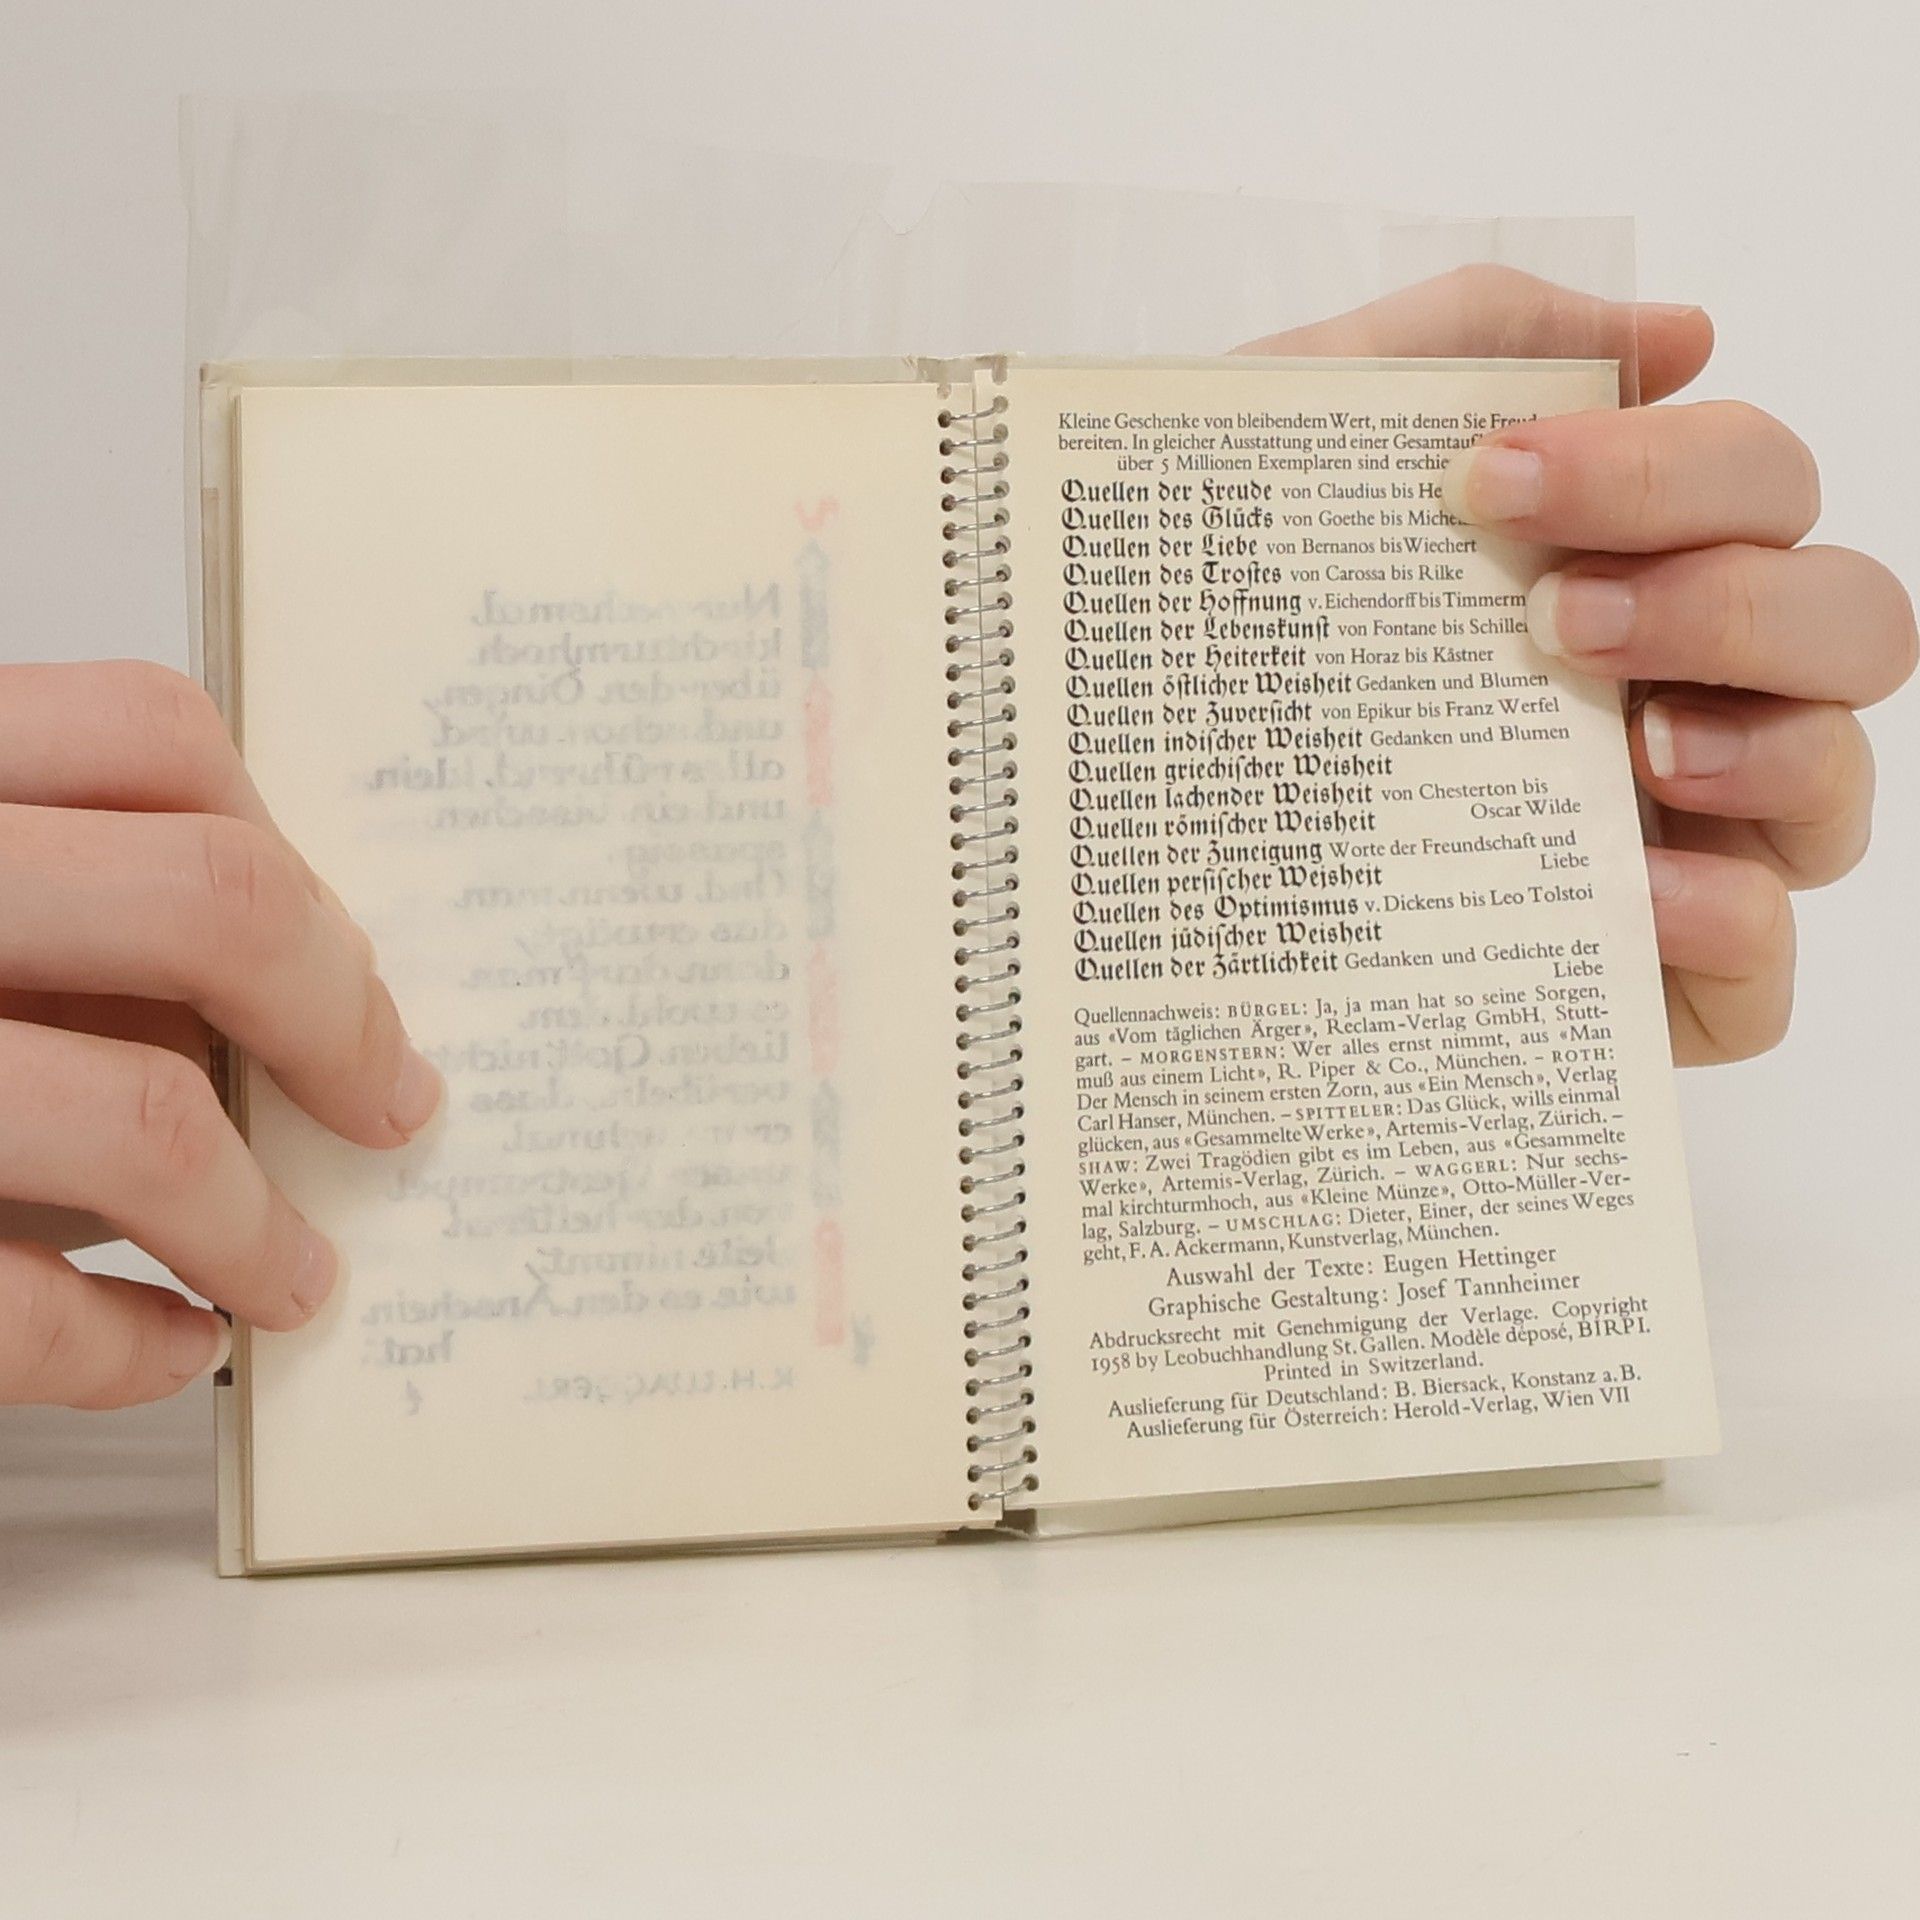 Kleine Geschenke von bleibendem Wert, mit denen Sie
bereiten. In gleicher Ausstattung und einer
über 5 Millionen Exemplaren sind
Quellen der Freude von Claudius bis
Quellen des Glücks von Goethe bis
Quellen der Liebe von Bernanos bis Wiechert
Quellen des Trostes von Carossa bis Rilke
Quellen der Hoffnung v. Eichendorff bis
Quellen der Lebenskunst von Fontane bis Schiller
Quellen der Heiterkeit von Horaz bis Kästner
Quellen östlicher Weisheit Gedanken und Blumen
Quellen der Zuversicht von Epikur bis Franz Werfel
Quellen indischer Weisheit Gedanken und Blumen
Quellen griechischer Weisheit
Quellen lachender Weisheit von Chesterton bis
Oscar Wilde
Quellen römischer Weisheit
Quellen der Zuneigung Worte der Freundschaft und
Liebe
Quellen persischer Weisheit
Quellen des Optimismus v. Dickens bis Leo Tolstoi
Quellen jüdischer Weisheit
Quellen der Zärtlichkeit Gedanken und Gedichte der
Liebe
Quellennachweis: BÜRGEL: Ja, ja man hat so seine Sorgen,
aus «Vom täglichen Ärger», Reclam-Verlag GmbH, Stutt-
gart. – MORGENSTERN: Wer alles ernst nimmt, aus «Man
muß aus einem Licht», R. Piper & Co., München. – ROTH:
Der Mensch in seinem ersten Zorn, aus «Ein Mensch», Verlag
Carl Hanser, München. – SPITTELER: Das Glück, wills einmal
glücken, aus «Gesammelte Werke», Artemis-Verlag, Zürich. –
SHAW: Zwei Tragödien gibt es im Leben, aus «Gesammelte
Werke», Artemis-Verlag, Zürich. – WAGGERL: Nur sechs-
mal kirchturmhoch, aus «Kleine Münze», Otto-Müller-Ver-
lag, Salzburg. – UMSCHLAG: Dieter, Einer, der seines Weges
geht, F. A. Ackermann, Kunstverlag, München.
Auswahl der Texte: Eugen Hettinger
Graphische Gestaltung: Josef Tannheimer
Abdrucksrecht mit Genehmigung der Verlage. Copyright
1958 by Leobuchhandlung St. Gallen. Modèle déposé, BIRPI.
Printed in Switzerland.
Auslieferung für Deutschland: B. Biersack, Konstanz a. B.
Auslieferung für Österreich: Herold-Verlag, Wien VII